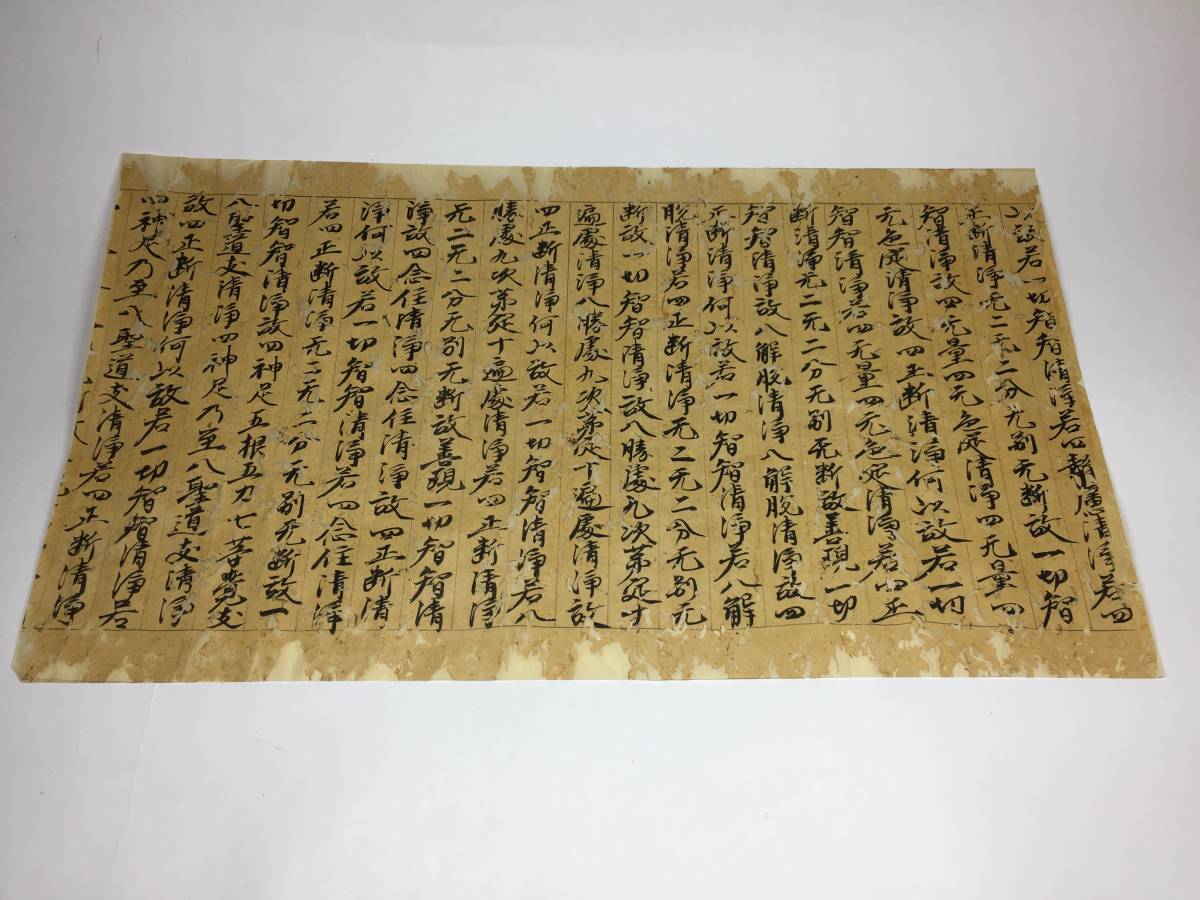 以故若一切智智清淨若四靜慮清淨若四
正断清淨无二无二分无别无断故一切智
智清淨故四无量四无色定清淨四无量四
无色定清淨故四正断清淨何以故若一切
智智清淨若四无量四无色定清淨若四正
断清淨无二无二分无别无断故善現一切
智智清淨故八解脱清淨八解脱清淨故四
正断清淨何以故若一切智智清淨若八解
脱清淨若四正断清淨无二无二分无别无
断故一切智智清淨故八勝處九次第定十
遍處清淨八勝處九次第定十遍處清淨故
四正断清淨何以故若一切智智清淨若八
勝處九次第定十遍處清淨若四正断清淨
无二无二分无别无断故善現一切智智清
淨故四念住清淨四念住清淨故四正断清
淨何以故若一切智智清淨若四念住清淨
若四正断清淨无二无二分无别无断故一
切智智清淨故四神足五根五力七等覺支
八聖道支清淨四神足乃至八聖道支清淨
故四正断清淨何以故若一切智智清淨若
四神足乃至八聖道支清淨若四正断清淨